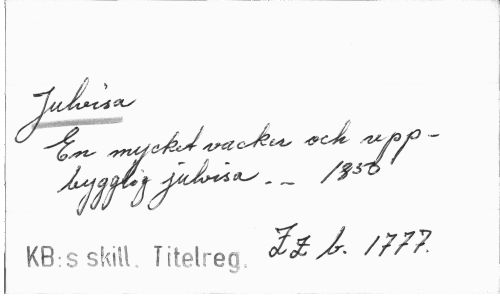 Julvisa
En mycket vacker och upp-
bygglig julvisa. -- 1850
KB:s skill. Titelreg. ZZ b. 1777.